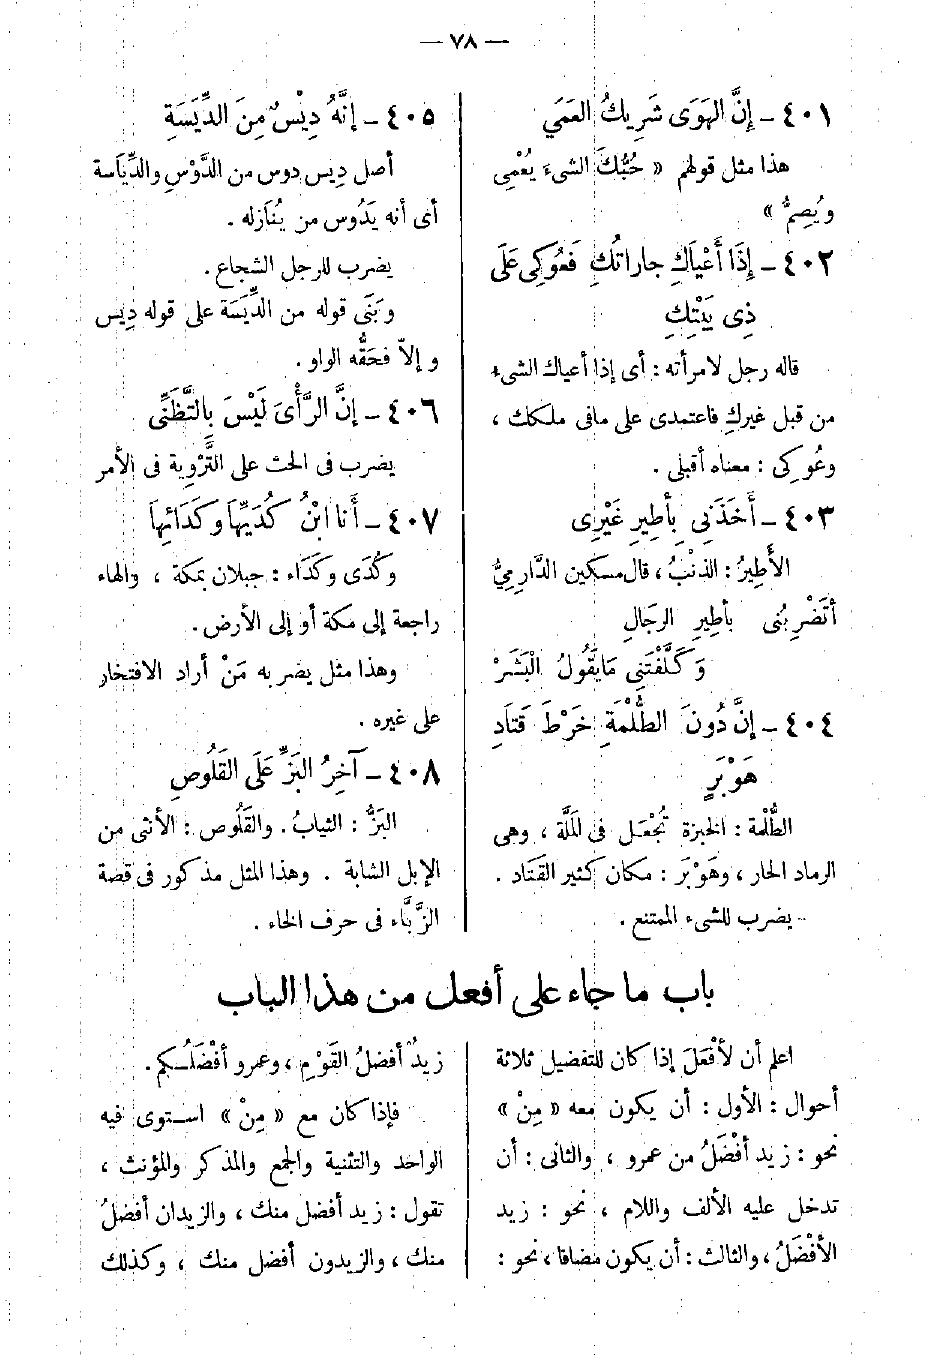 — ٧٨ —
٤٠١ - إِنَّ الهَوَى شَرِيكُ العَمَي
هذا مثل قولهم « حُبُّكَ الشىء يُعْمِى
ويُصِمُّ »
٤٠٢ - إِذَا أَعْيَاكِ جاراتُكِ فَعُوكِى عَلَى
ذِى بَيْتِكِ
قاله رجل لامرأته : أى إذا أعياك الشىء
من قبل غيركِ فاعتمدى على مافى ملكك ،
وعُوكِى : معناه أقبلى .
٤٠٣ - أَخَذَنِي بِأَطِيرِ غَيْرِى
الأَطِيرُ : الذنْبُ ، قال مسكين الدَّارِمِيُّ
أَتَضْرِبُنى بأَطِيرِ الرجَالِ
وَكَلَّفْتَنِي مَايَقُولُ الْبَشَرْ
٤٠٤ - إِنَّ دُونَ الطُّلْمَةِ خَرْطَ قَتَادِ
هَوْبَرٍ
الطُّلْمة : الخبزة تُجْعَل فى المَلَّة ، وهى
الرماد الحار ، وهَوْبَر : مكان كثير القَتَاد .
يضرب للشىء الممتنع .
٤٠٥ - إِنَّهُ دِيْسٌ مِنَ الدِّيَسَةِ
أصل دِيس دوس من الدَّوْسِ والدِّيَاسة
أى أنه يَدُوس من يُنَازله .
يضرب للرجل الشجاع .
وَبَنَى قوله من الدِّيَسَة على قوله دِيس
وإلاّ فحَقُّه الواو .
٤٠٦ - إِنَّ الرَّأْىَ لَيْسَ بِالتَّظَنِّى
يضرب فى الحث على التَّرْوِية فى الأمر
٤٠٧ - أَنا ابْنُ كُدَيِّهَا وكَدَائِهَا
وكُدَى وكَدَاء : جبلان بمكة ، والهاء
راجعة إلى مكة أو إلى الأرض .
وهذا مثل يضربه مَنْ أراد الافتخار
على غيره .
٤٠٨ - آخِرُ البَزِّ عَلَى القَلُوصِ
البَزُّ : الثيابُ . والقَلُوص : الأنثى من
الإبل الشابة . وهذا المثل مذكور فى قصة
الزَّبَّاء فى حرف الخاء .
باب ماجاء على أفعل من هذا الباب
اعلم أن لأَفْعَلَ إذا كان للتفضيل ثلاثة
أحوال : الأول : أن يكون معه « مِنْ »
نحو : زيد أفْضَلُ من عمرو ، والثانى : أن
تدخل عليه الألف واللام ، نحو : زيد
الأَفْضَلُ ، والثالث : أن يكون مضافا ، نحو :
زيدٌ أفضلُ القَوْمِ ، وعمرو أفْضَلُكم .
فإذا كان مع « مِنْ » استوى فيه
الواحد والتثنية والجمع والمذكر والمؤنث ،
تقول : زيد أفضل منك ، والزيدان أفضلُ
منك ، والزيدون أفضل منك ، وكذلك